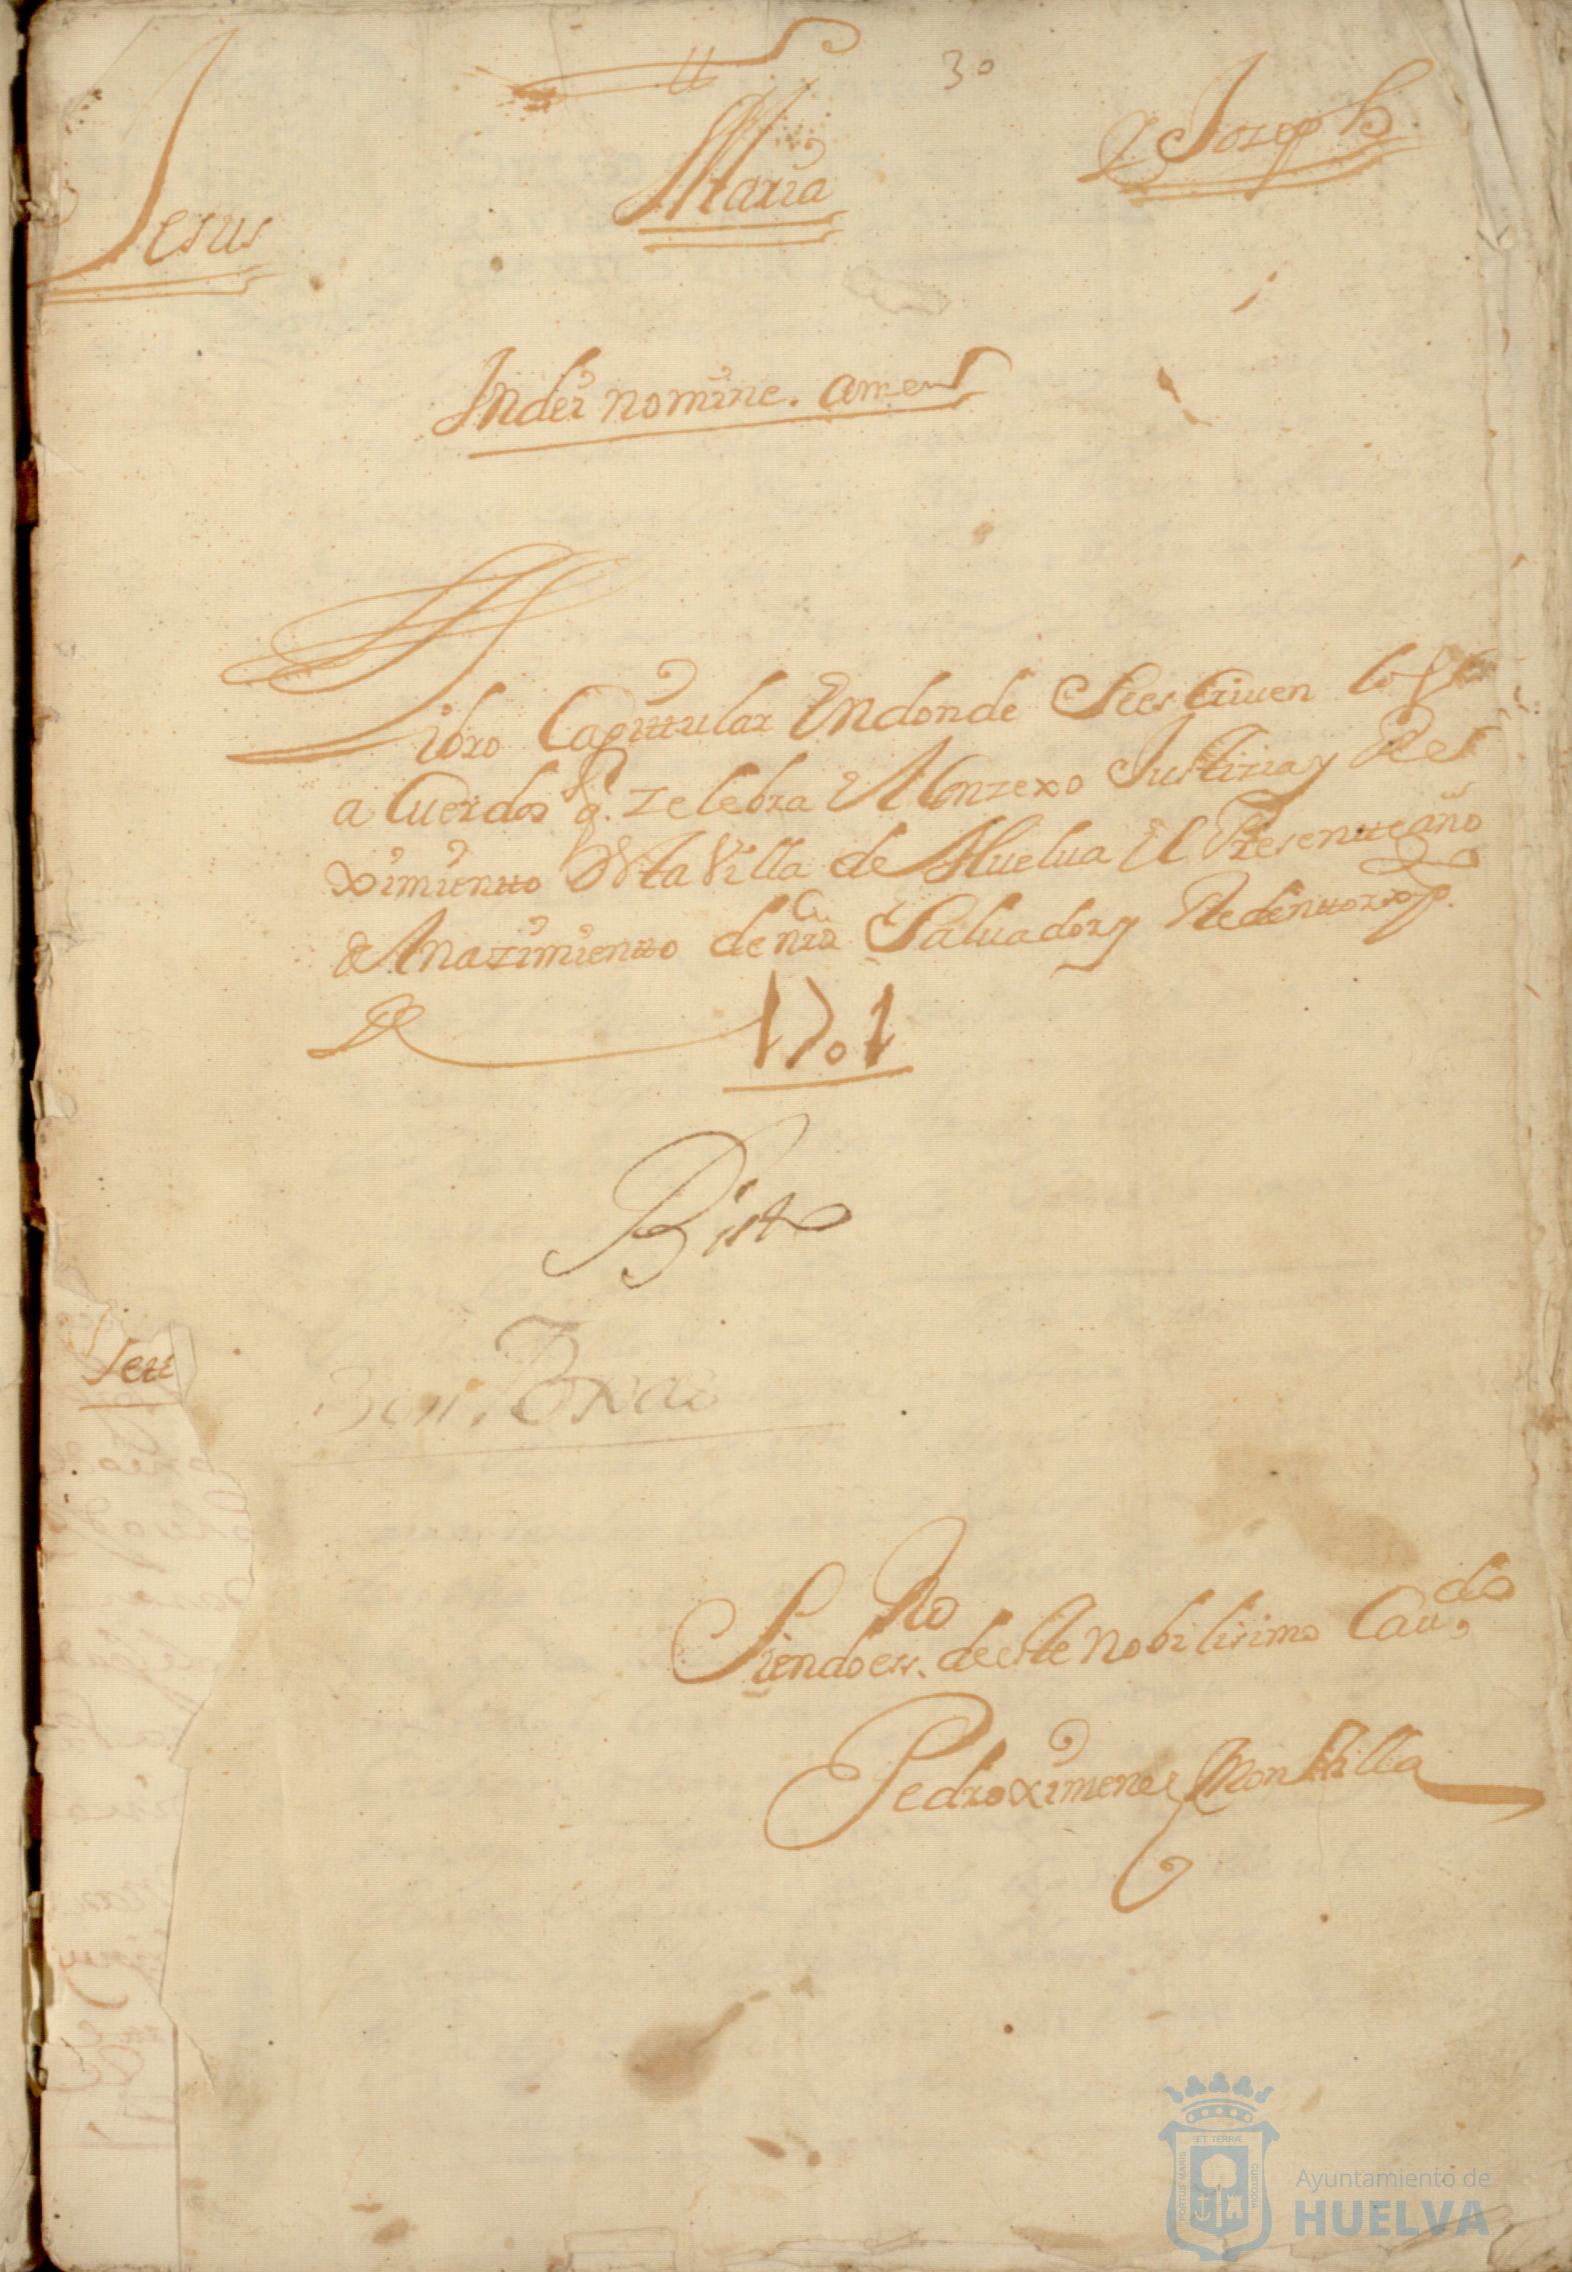 30
Jesus Maria y Joseph
Indei nomine. amen
Libro Capitular Endonde Seescriuen los
a Cuerdos q. zelebra el Conzexo Justizia y Re
ximiento de la Villa de Huelua el Presente año
del nazimiento de nro Saluador y Redentor
1701
Bisto
Siendo ess.no de este nobilisimo Cau.do
Pedro ximenes Montilla
ET TERRÆ
PORTUS MARIS
CUSTODIA
Ayuntamiento de
HUELVA